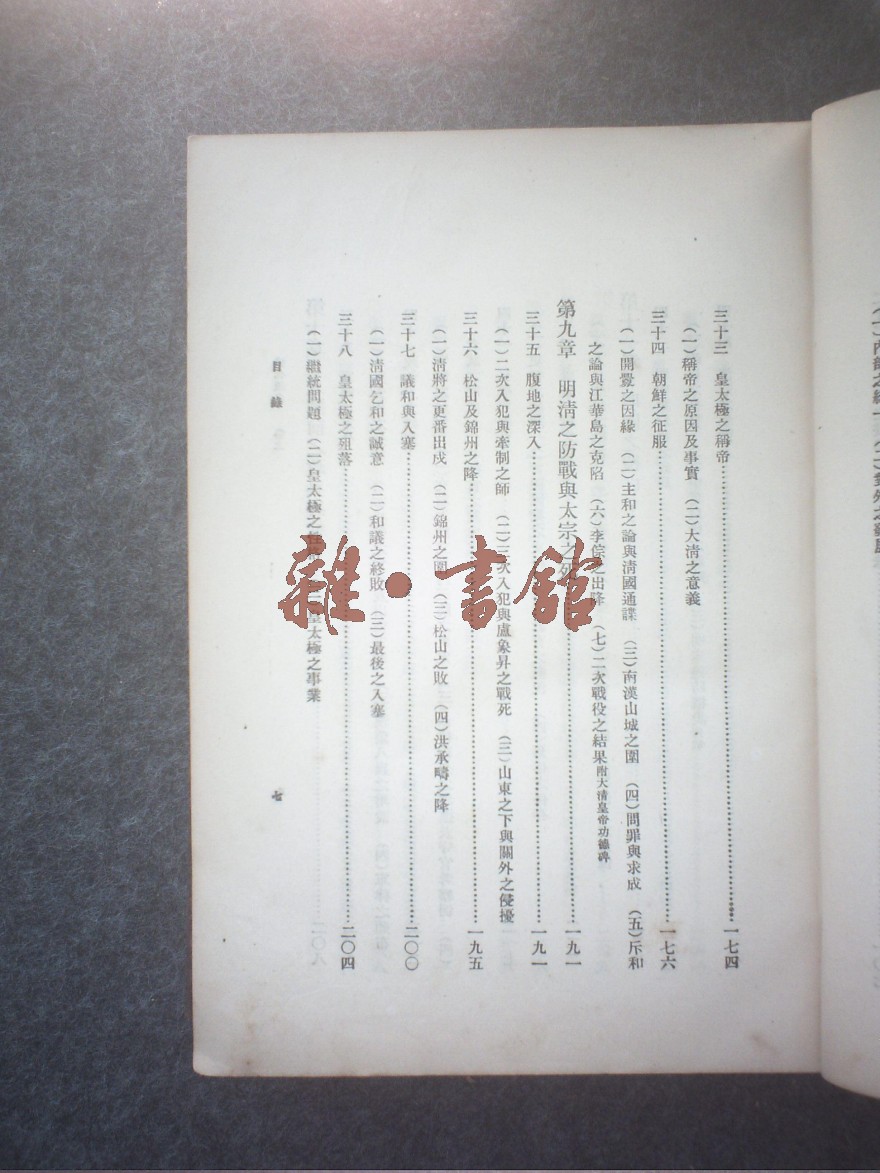 三十三　皇太極之稱帝⋯⋯一七四
（一）稱帝之原因及事實　（二）大清之意義
三十四　朝鮮之征服⋯⋯一七六
（一）開釁之因緣　（二）主和之論與清國通諜　（三）南漢山城之圍　（四）問罪與求成　（五）斥和
之論與江華島之克陷　（六）李倧之出降　（七）二次戰役之結果附大清皇帝功德碑
第九章　明清之防戰與太宗之死⋯⋯一九一
三十五　腹地之深入⋯⋯一九一
（一）二次入犯與牽制之師　（二）三次入犯與盧象昇之戰死　（三）山東之下與關外之侵擾
三十六　松山及錦州之降⋯⋯一九五
（一）清將之更番出戍　（二）錦州之圍　（三）松山之敗　（四）洪承疇之降
三十七　議和與入塞⋯⋯二〇〇
（一）清國乞和之誠意　（二）和議之終敗　（三）最後之入塞
三十八　皇太極之殂落⋯⋯二〇四
（一）繼統問題　（二）皇太極之　皇太極之事業
目錄
七
雜·書館